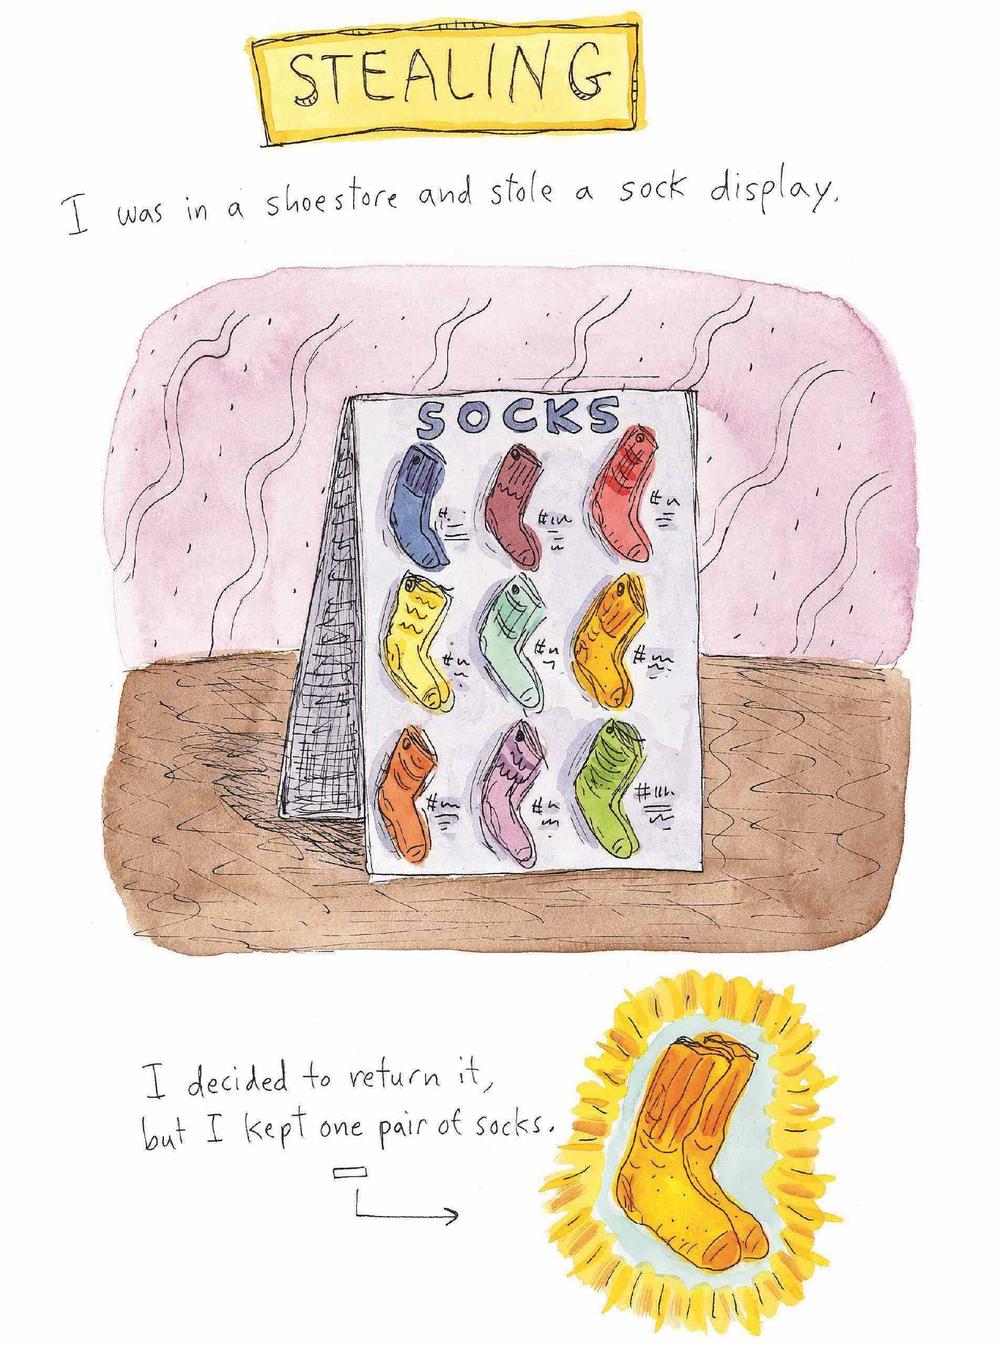 STEALING
I was in a shoestore and stole a sock display.
SOCKS
I decided to return it,
but I kept one pair of socks.